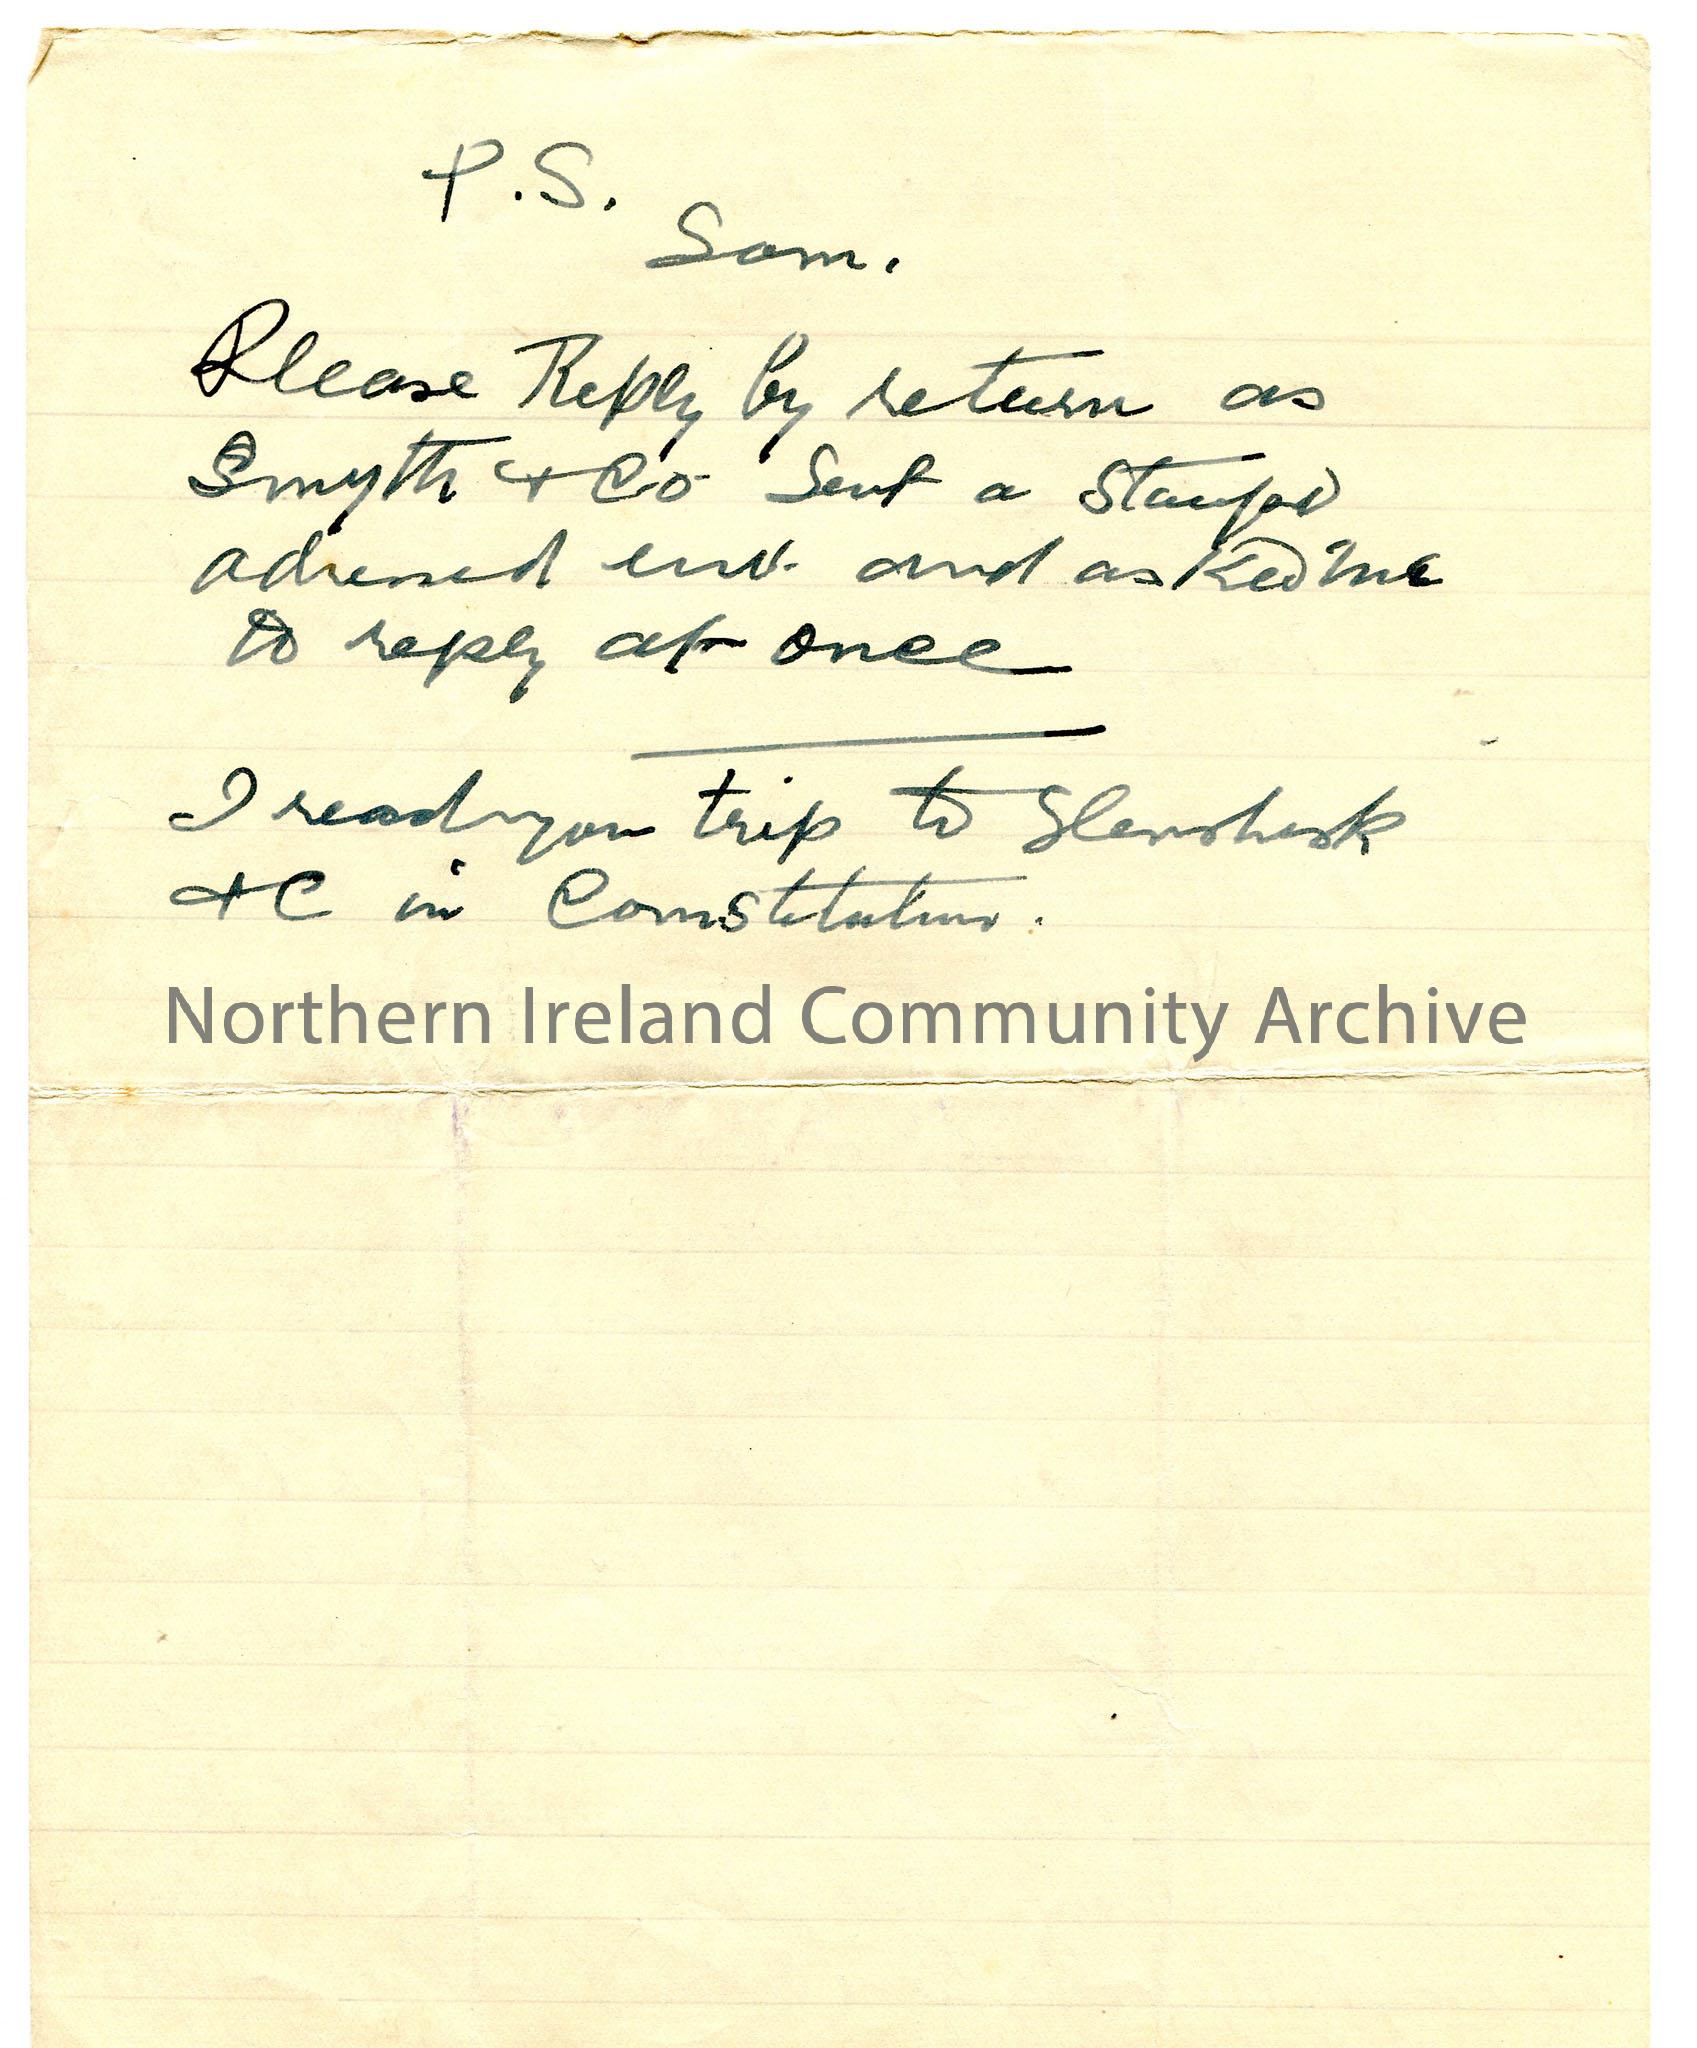 P.S.
Sam.
Please Reply by return as
Smyth & Co Sent a Stamped
adressed env. and asked me
to reply at once
I read your trip to Glenshesk
&C in Constitution.
Northern Ireland Community Archive